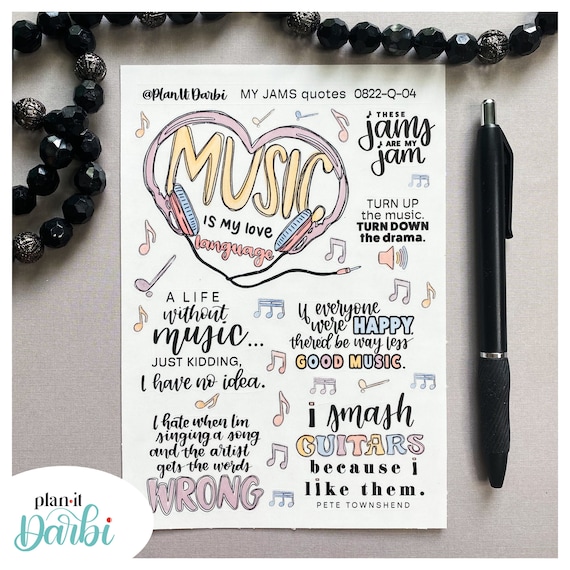 @PlanItDarbi MY JAMS quotes 0822-Q-04
MUSIC
IS My love
language
THESE
Jams
ARE MY
Jam
TURN UP
the music.
TURN DOWN
the drama.
A LIFE
without
music...
JUST KIDDING,
I have no idea.
If everyone
were HAPPY
there'd be way less
GOOD MUSIC.
I hate when I'm
singing a song
and the artist
gets the words
WRONG
i smash
GUITARS
because i
like them.
PETE TOWNSHEND
plan•it
Darbi